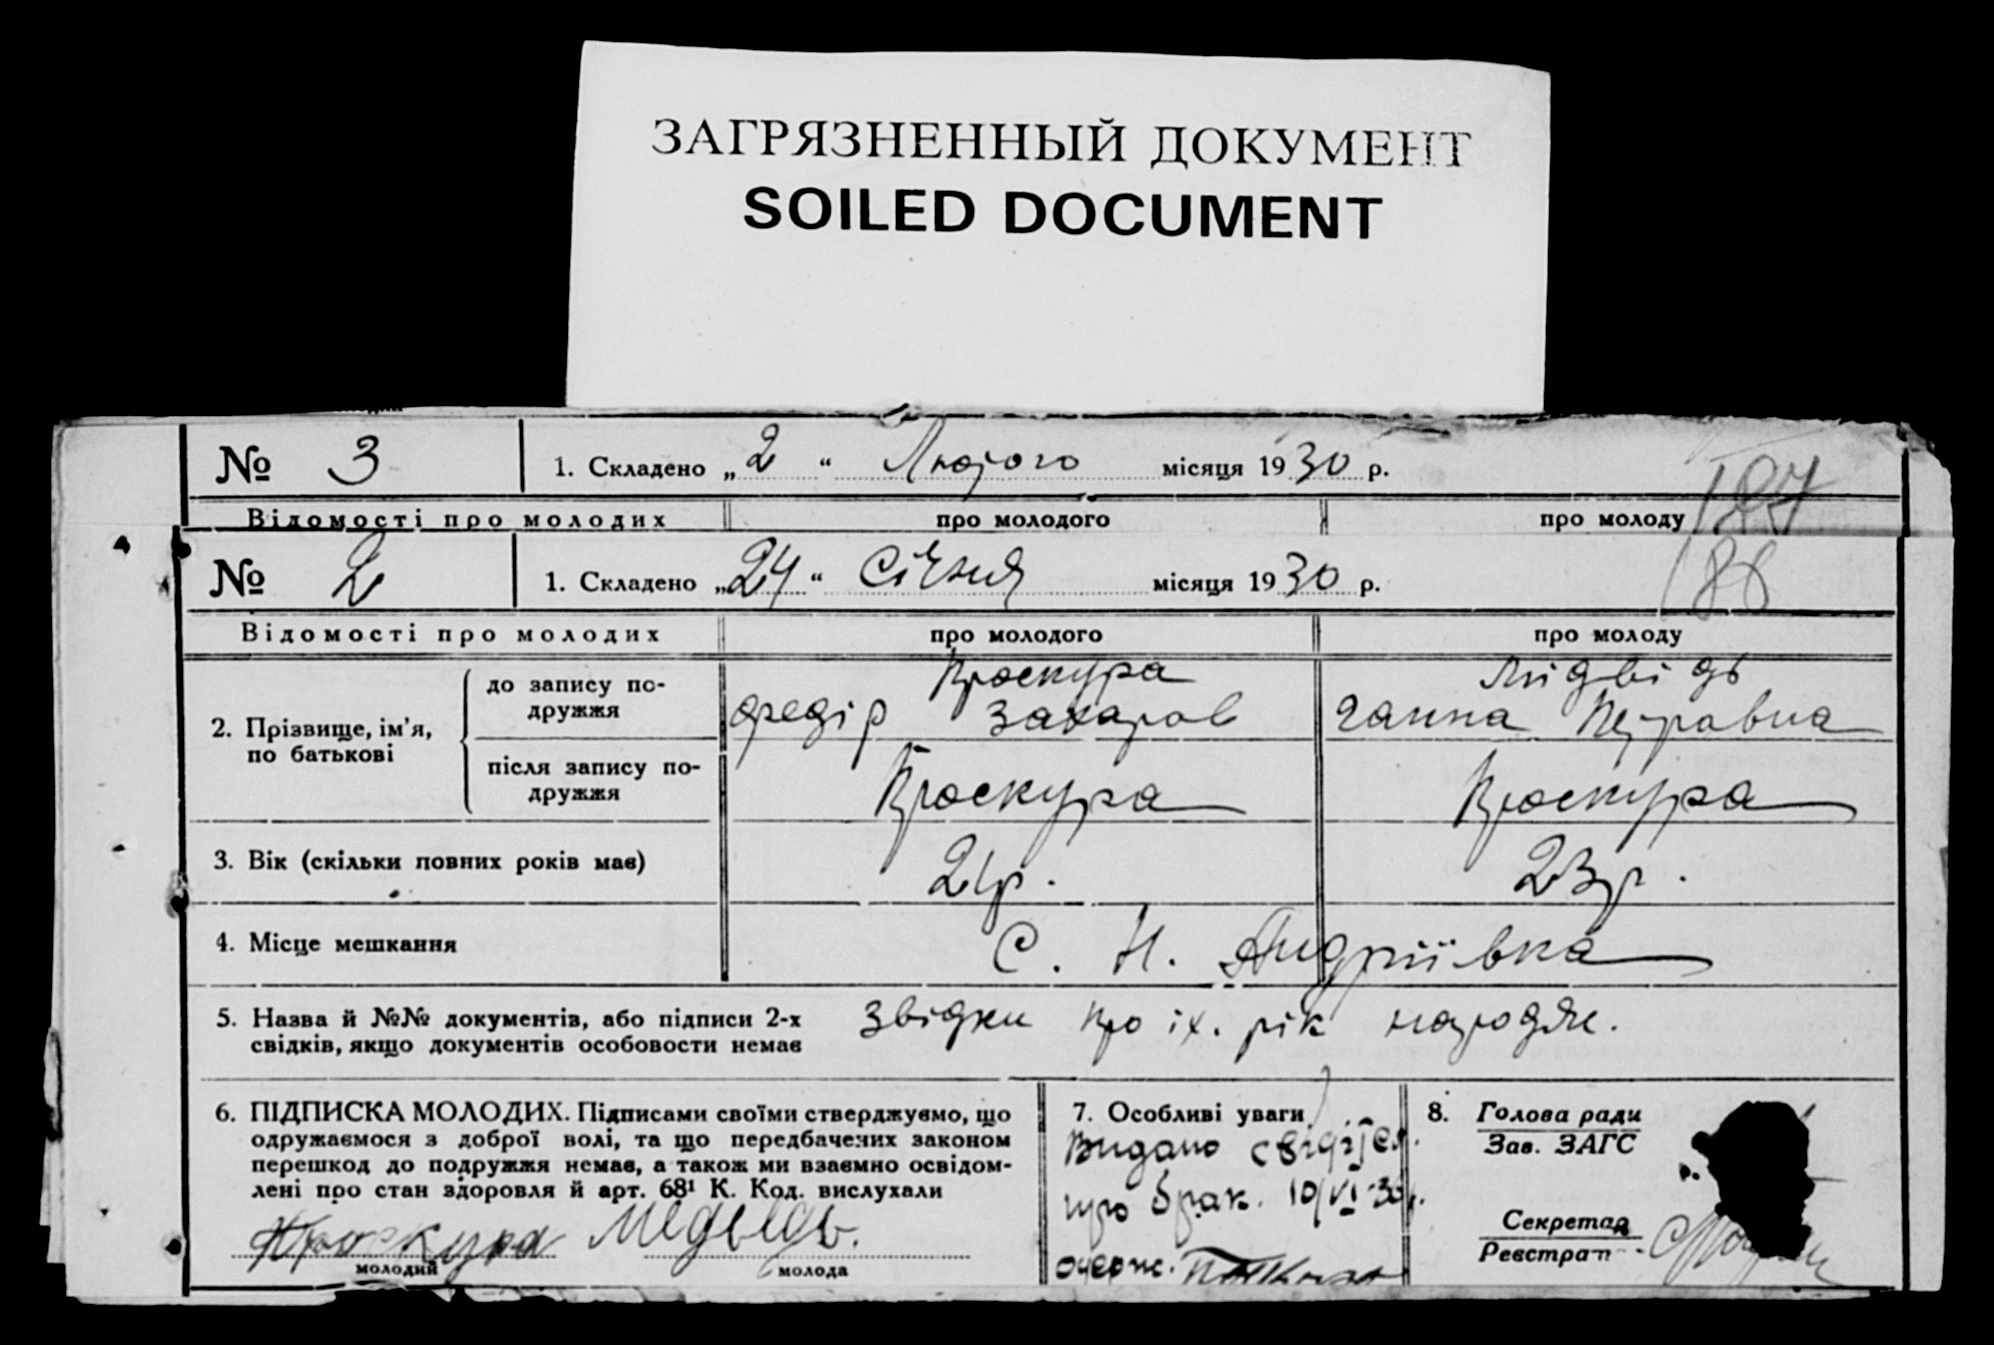 ЗАГРЯЗНЕННЫЙ ДОКУМЕНТ
SOILED DOCUMENT
№ 3 1. Складено „2“ Лютого місяця 1930 р.
187
Відомості про молодих про молодого про молоду
№ 2 1. Складено „24“ Січня місяця 1930 р.
186
Відомості про молодих про молодого про молоду
2. Прізвище, ім'я, по батькові
до запису по-
дружжя
Проскура
Федір Захаров
Мидвідь
Ганна Петровна
після запису по-
дружжя
Проскура Проскура
3. Вік (скільки повних років має) 24р. 23р.
4. Місце мешкання С. Н. Андріївка
5. Назва й №№ документів, або підписи 2-х
свідків, якщо документів особовости немає
Звідки про іх. рік народж.
6. ПІДПИСКА МОЛОДИХ. Підписами своїми стверджуємо, що
одружаємося з доброї волі, та що передбачених законом
перешкод до подружжя немає, а також ми взаємно освідом-
лені про стан здоровля й арт. 68¹ К. Код. вислухали
Проскура Медведь.
молодий молода
7. Особливі уваги
Видано свідітел.
про брак. 10/VI-30р.
одерж.
8. Голова ради
Зав. ЗАГС
Секретар
Реєстратп